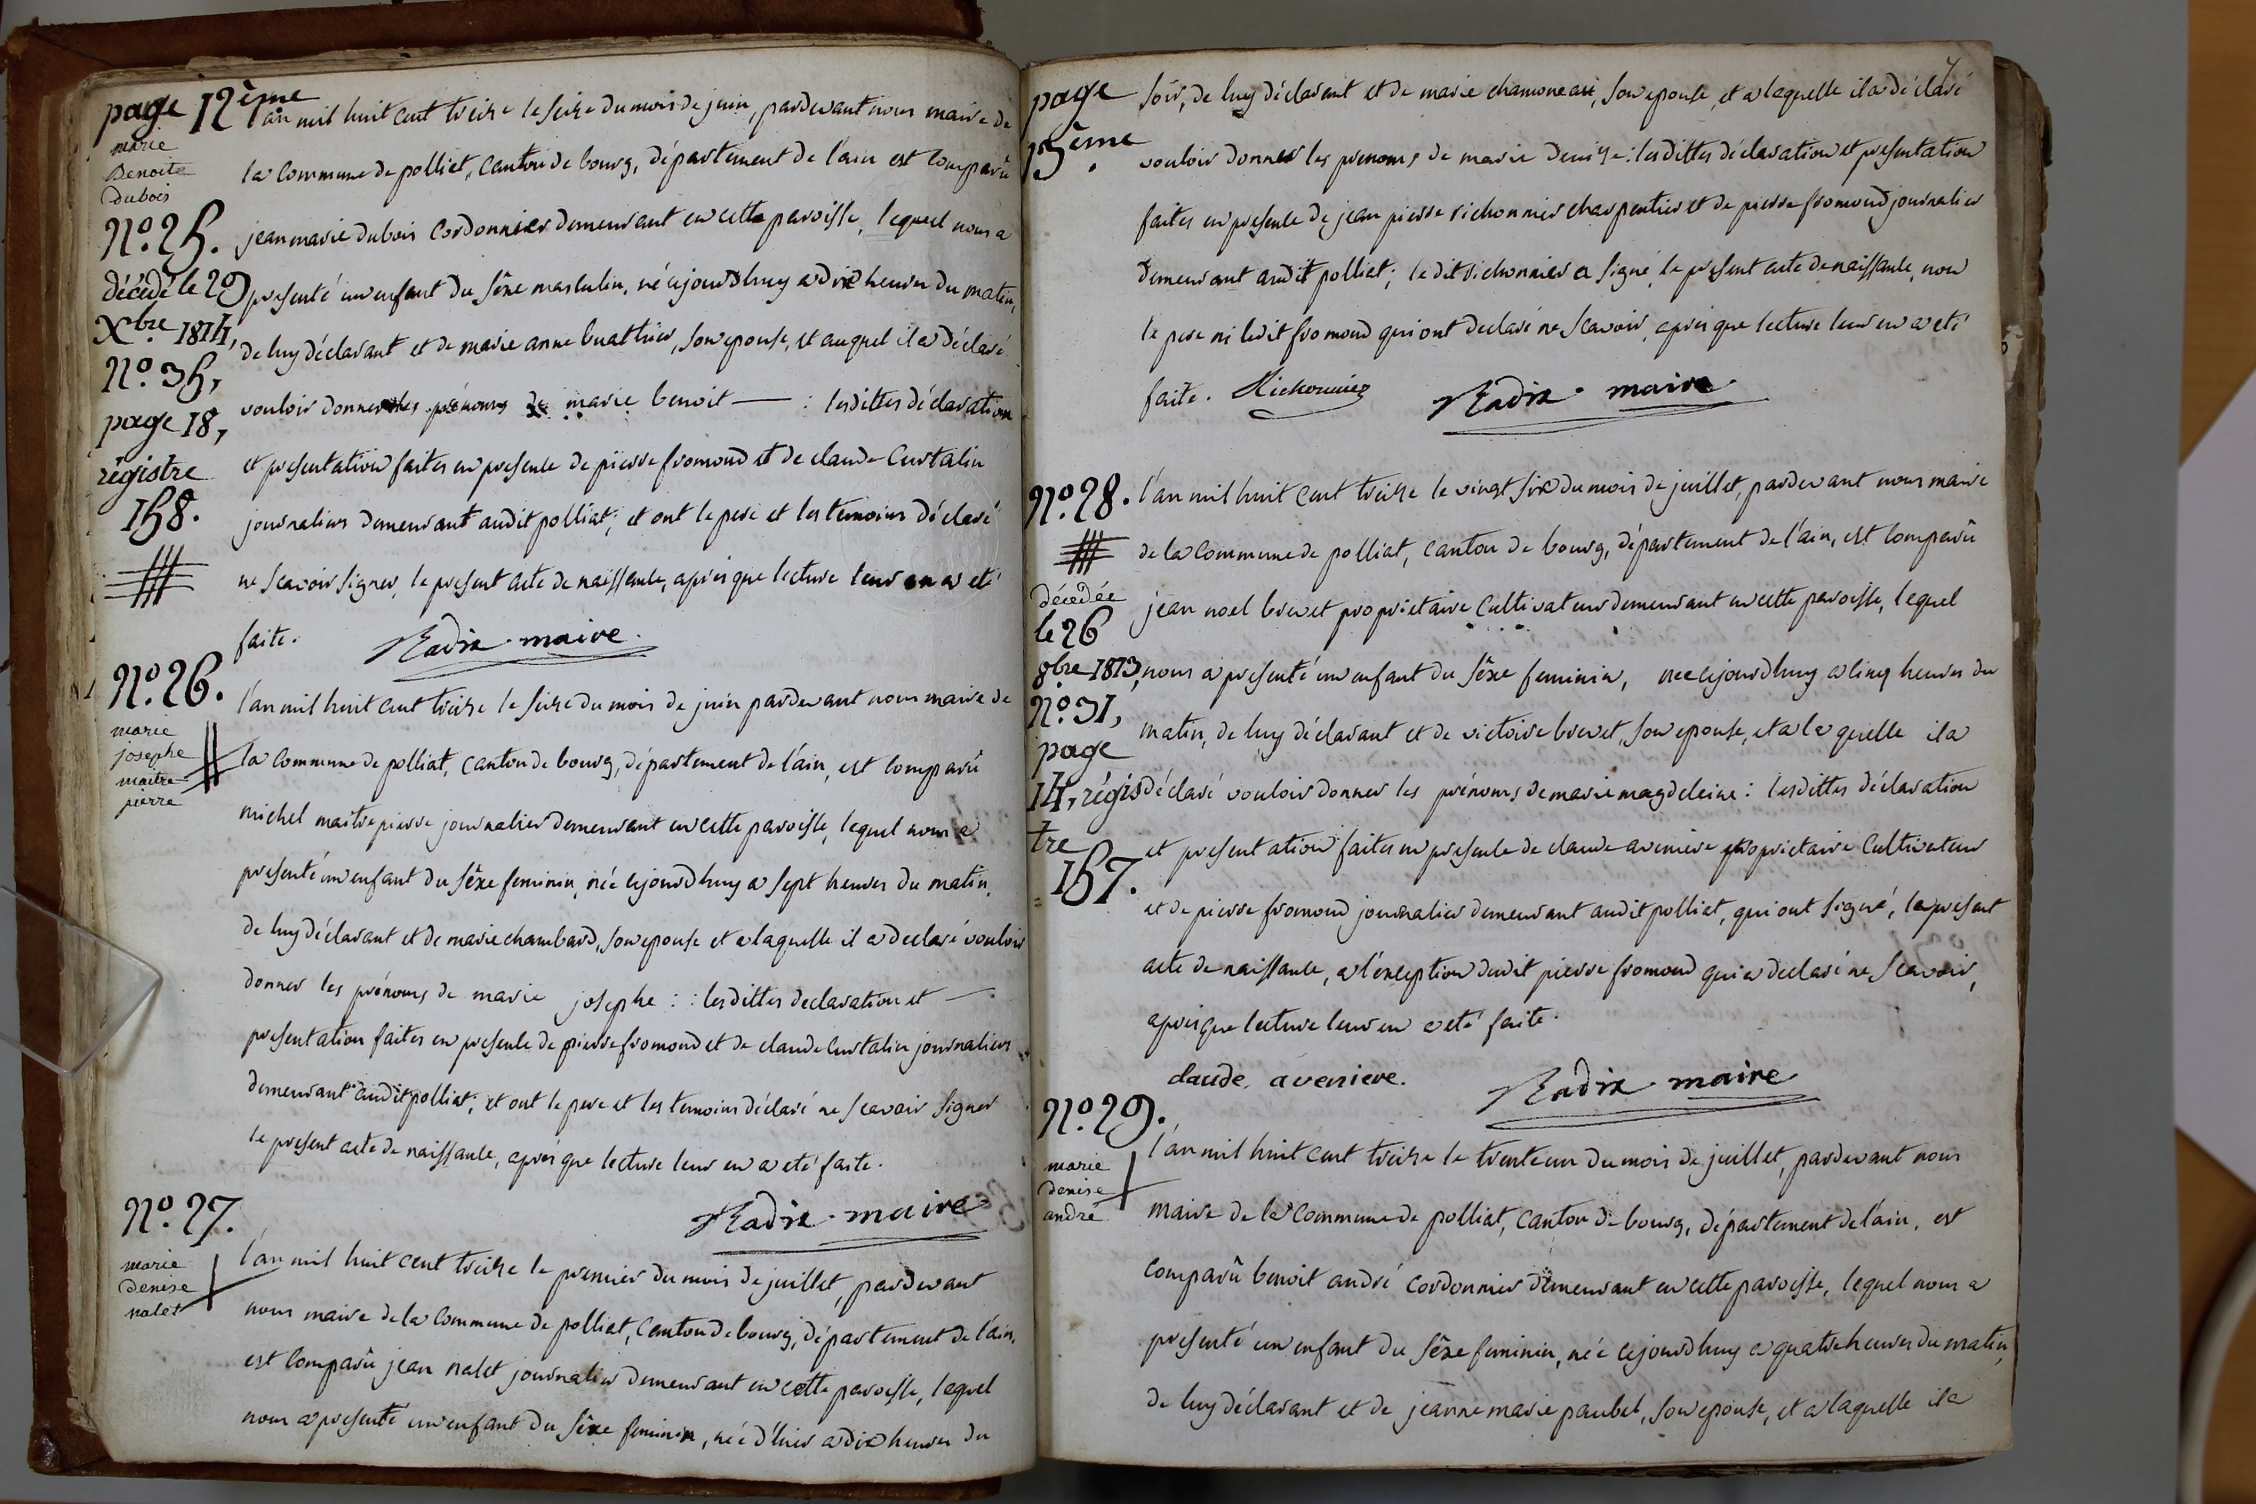 page 12ème
marie
Benoite
dubois
N.o 25.
décédé le 29
Xbre 1814,
N.o 35,
page 18,
régistre
158.
l'an mil huit cent treize le seize du mois de juin, pardevant nous maire de
la commune de polliat, canton de bourg, département de l'ain est comparû
jean marie dubois cordonnier demeurant en cette paroisse, lequel nous a
presenté un enfant du sêxe masculin, né cejourdhuy a dix heures du matin,
de luy déclarant et de marie anne buathier, son epouse, et auquel il a déclaré
vouloir donner les prénoms de marie benoit — : lesdittes déclaration
et presentation faites en presence de pierre fromond et de claude Curtalin
journaliers demeurant audit polliat; et ont le pere et les temoins déclaré
ne scavoir signer, le present acte de naissance, après que lecture leur en a eté
faite. Nadix maire.
N.o 26.
marie
josephe
maitre
pierre
l'an mil huit cent treize le seize du mois de juin pardevant nous maire de
la commune de polliat, canton de bourg, département de l'ain, est comparû
michel maitrepierre journalier demeurant en cette paroisse, lequel nous a
presenté un enfant du sêxe feminin, née cejourdhuy a sept heures du matin,
de luy déclarant et de marie chambard, son epouse et a laquelle il a declaré vouloir
donner les prénoms de marie josephe : : lesdittes declaration et —
presentation faites en presence de pierre fromond et de claude Curtalin journaliers
demeurant audit polliat; et ont le pere et les temoins déclaré ne scavoir signer
le present acte de naissance, après que lecture leur en a eté faite.
Nadix maire
N.o 27.
marie
denise
nalet
l'an mil huit cent treize le premier du mois de juillet, pardevant
nous maire de la commune de polliat, canton de bourg, département de l'ain,
est comparû jean nalet journalier demeurant en cette paroisse, lequel
nous a presenté un enfant du sêxe feminin, née d'hier a dix heures du
page
13ème.
soir, de luy déclarant et de marie son epouse, et a laquelle il a déclaré
vouloir donner les prenoms de marie denise : lesdittes déclaration et presentation
faites en presence de jean pierre richonnier charpentier et de pierre fromond journalier
demeurant audit polliat; ledit richonnier a signé le present acte de naissance, non
le pere ni ledit fromond qui ont declaré ne scavoir, après que lecture leur en a eté
faite. Richonnier Nadix maire
N.o 28.
décédée
le 26
8bre 1813,
N.o 31,
page
14, régis
tre
157.
l'an mil huit cent treize le vingt six du mois de juillet, pardevant nous maire
de la commune de polliat, canton de bourg, département de l'ain, est comparû
jean noel brevet proprietaire Cultivateur demeurant en cette paroisse, lequel
nous a presenté un enfant du sêxe feminin, née cejourdhuy a cinq heures du
matin, de luy déclarant et de victoire brevet, son epouse, et a la quelle il a
déclaré vouloir donner les prénoms de marie magdeleine : lesdittes déclaration
et presentation faites en presence de claude aveniere proprietaire Cultivateur
et de pierre fromond journalier demeurant audit polliat, qui ont signé, le present
acte de naissance, a l'exception dudit pierre fromond qui a declaré ne scavoir,
après que lecture leur en a eté faite.
claude aveniere. Nadix maire
N.o 29.
marie
denise
andré
l'an mil huit cent treize le trente un du mois de juillet, pardevant nous
maire de la commune de polliat, canton de bourg, département de l'ain, est
comparû benoit andré cordonnier demeurant en cette paroisse, lequel nous a
presenté un enfant du sêxe feminin, née cejourdhuy a quatre heures du matin,
de luy déclarant et de jeanne marie paubel, son epouse, et a laquelle il a